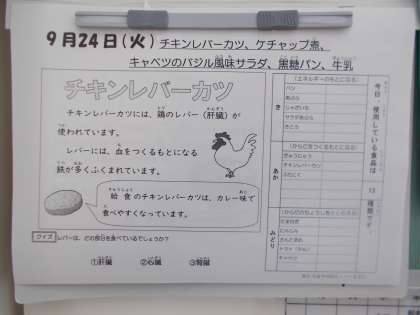 9月24日(火) チキンレバーカツ、ケチャップ煮、
キャベツのバジル風味サラダ、黒糖パン、牛乳
チキンレバーカツ
チキンレバーカツには、鶏のレバー(肝臓)が
使われています。
レバーには、血をつくるもとになる
鉄が多くふくまれています。
給食のチキンレバーカツは、カレー味で
食べやすくなっています。
クイズ レバーは、どの部分を食べているでしょうか?
①肝臓 ②心臓 ③腎臓
今日、使用している食品は 13 種類です。
き
(エネルギーのもとになる)
パン
あぶら
じゃがいも
サラダあぶら
さとう
あか
(からだをつくるもとになる)
ぎゅうにゅう
チキンレバーカツ
ぶたにく
みどり
(からだのちょうしをととのえる)
たまねぎ
にんじん
キャベツ